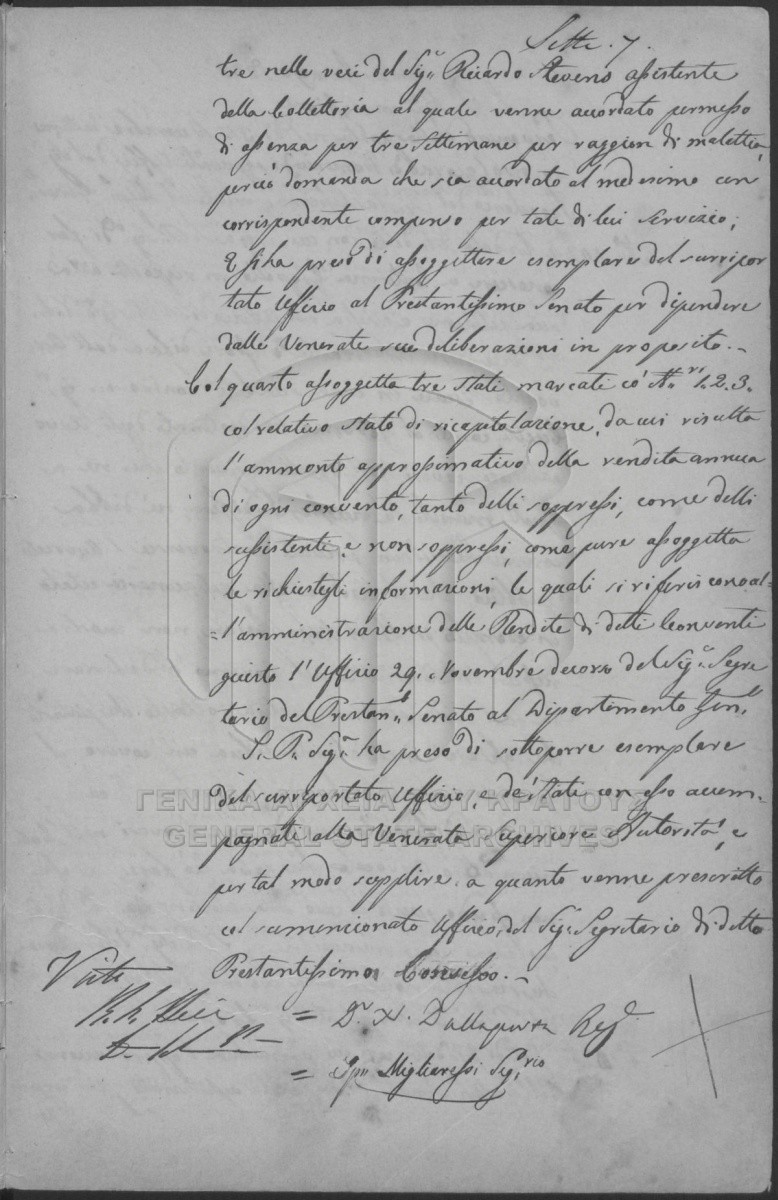 Sette. 7.
tre nelle veci del Sig.r Riccardo Stevens assistente
della Collettoria al quale venne accordato permesso
di assenza per tre settimane per raggion di malattia,
perciò domanda che sia accordato al medesimo un
corrispondente compenso per tale di lui servizio;
E si ha preso di assoggettere esemplare del surripor
tato Uffizio al Prestantissimo Senato per dipendere
dalle Venerate sue deliberazioni in proposito.–
Col quarto assoggetta tre stati marcati co' N.ri 1.2.3.
col relativo stato di ricapitolazione, da cui risulta
l'ammonto approssimativo della rendita annua
di ogni convento, tanto delli soppressi, come delli
sussistenti e non soppressi, come pure assoggetta
le richiestegli informazioni, le quali si riferiscono al=
=l'amministrazione delle Rendite di detti Conventi
giusto l'Uffizio 29. Novembre decorso del Sig.r Segre
tario del Prestan.o Senato al Dipartimento Gen.le
S. P. Sig.a ha preso di sottoporre esemplare
del surriportato Uffizio, e de' Stati con esso accom-
pagnati alla Venerata Superiore Autorità, e
per tal modo supplire a quanto venne prescritto
col summenzionato Uffizio, del Sig.r Segretario di detto
Prestantissimo Consesso.–
Visto
= D.r N. Dallaporta Reg.
= Migliaressi Seg.rio
ΓΕΝΙΚΑ ΑΡΧΕΙΑ ΤΟΥ ΚΡΑΤΟΥΣ
GENERAL STATE ARCHIVES